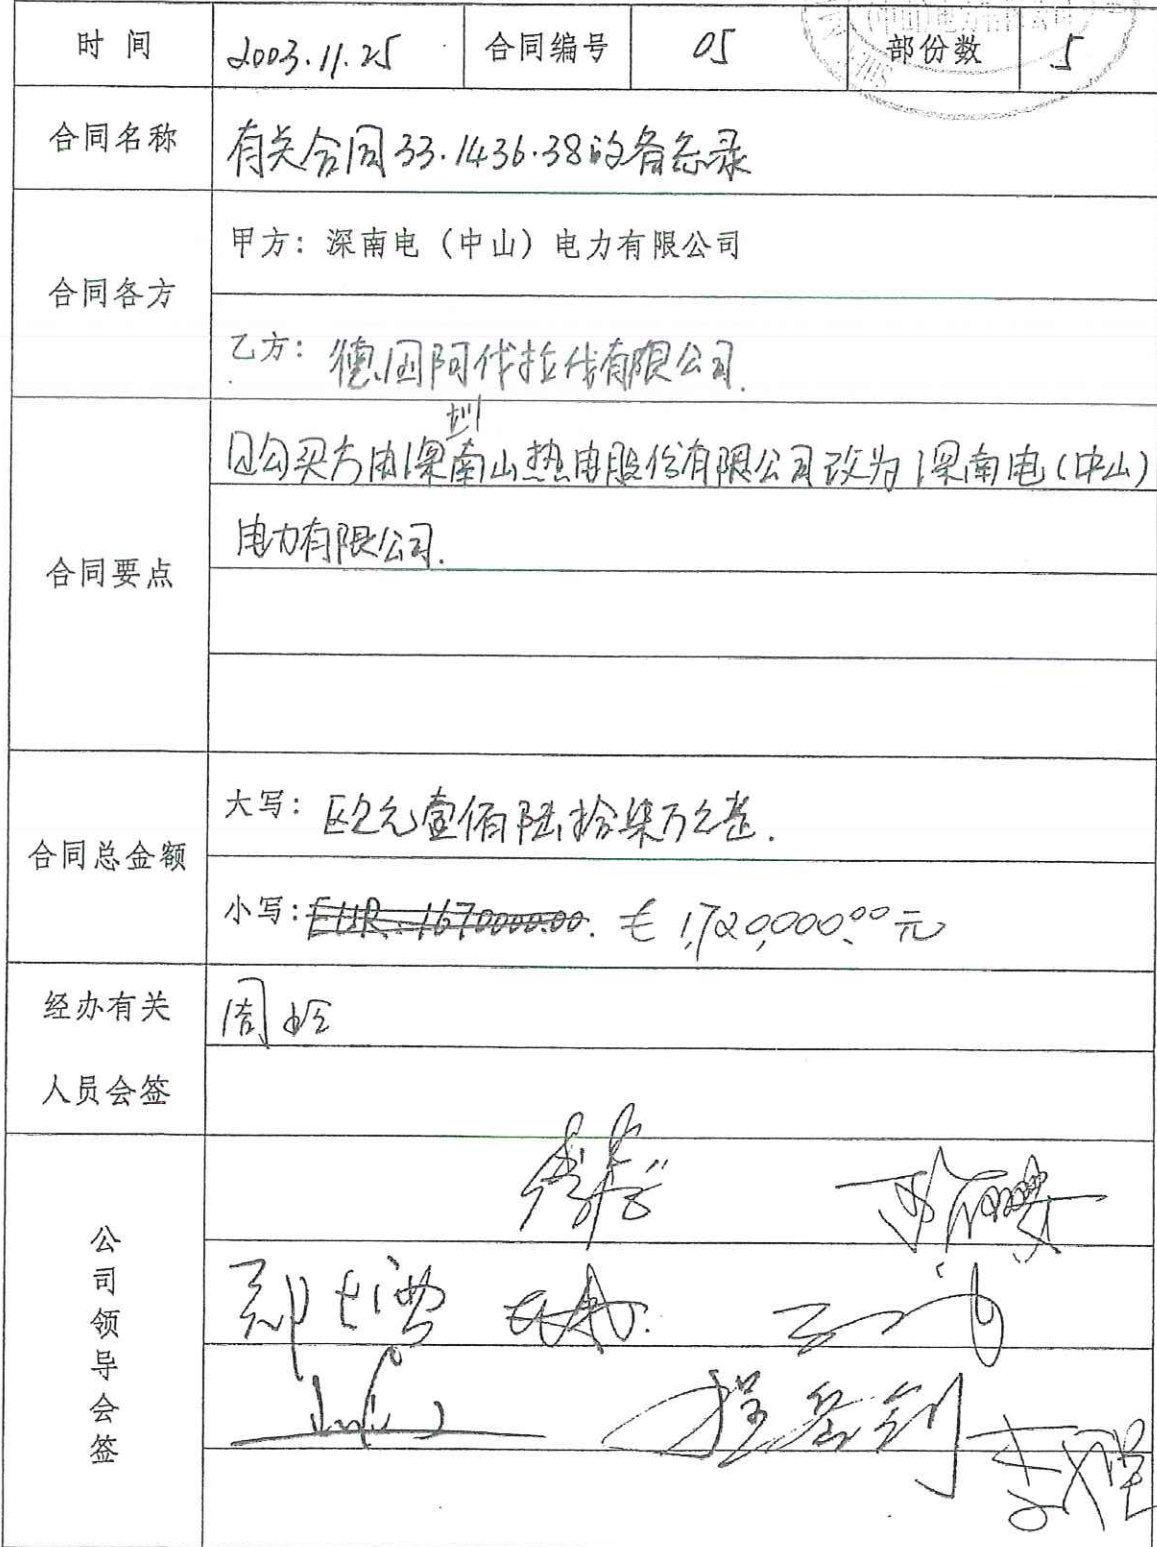 时间 2003.11.25 合同编号 05 部份数 5
合同名称 有关合同33.1436.38的备忘录
合同各方
甲方：深南电（中山）电力有限公司
乙方：德国阿代拉代有限公司.
合同要点
买方由深圳南山热电股份有限公司改为深南电（中山）
电力有限公司.
合同总金额
大写：欧元壹佰陆拾柒万元整.
小写：EUR 1670000.00. € 1,720,000.00元
经办有关
人员会签
周
公司领导会签